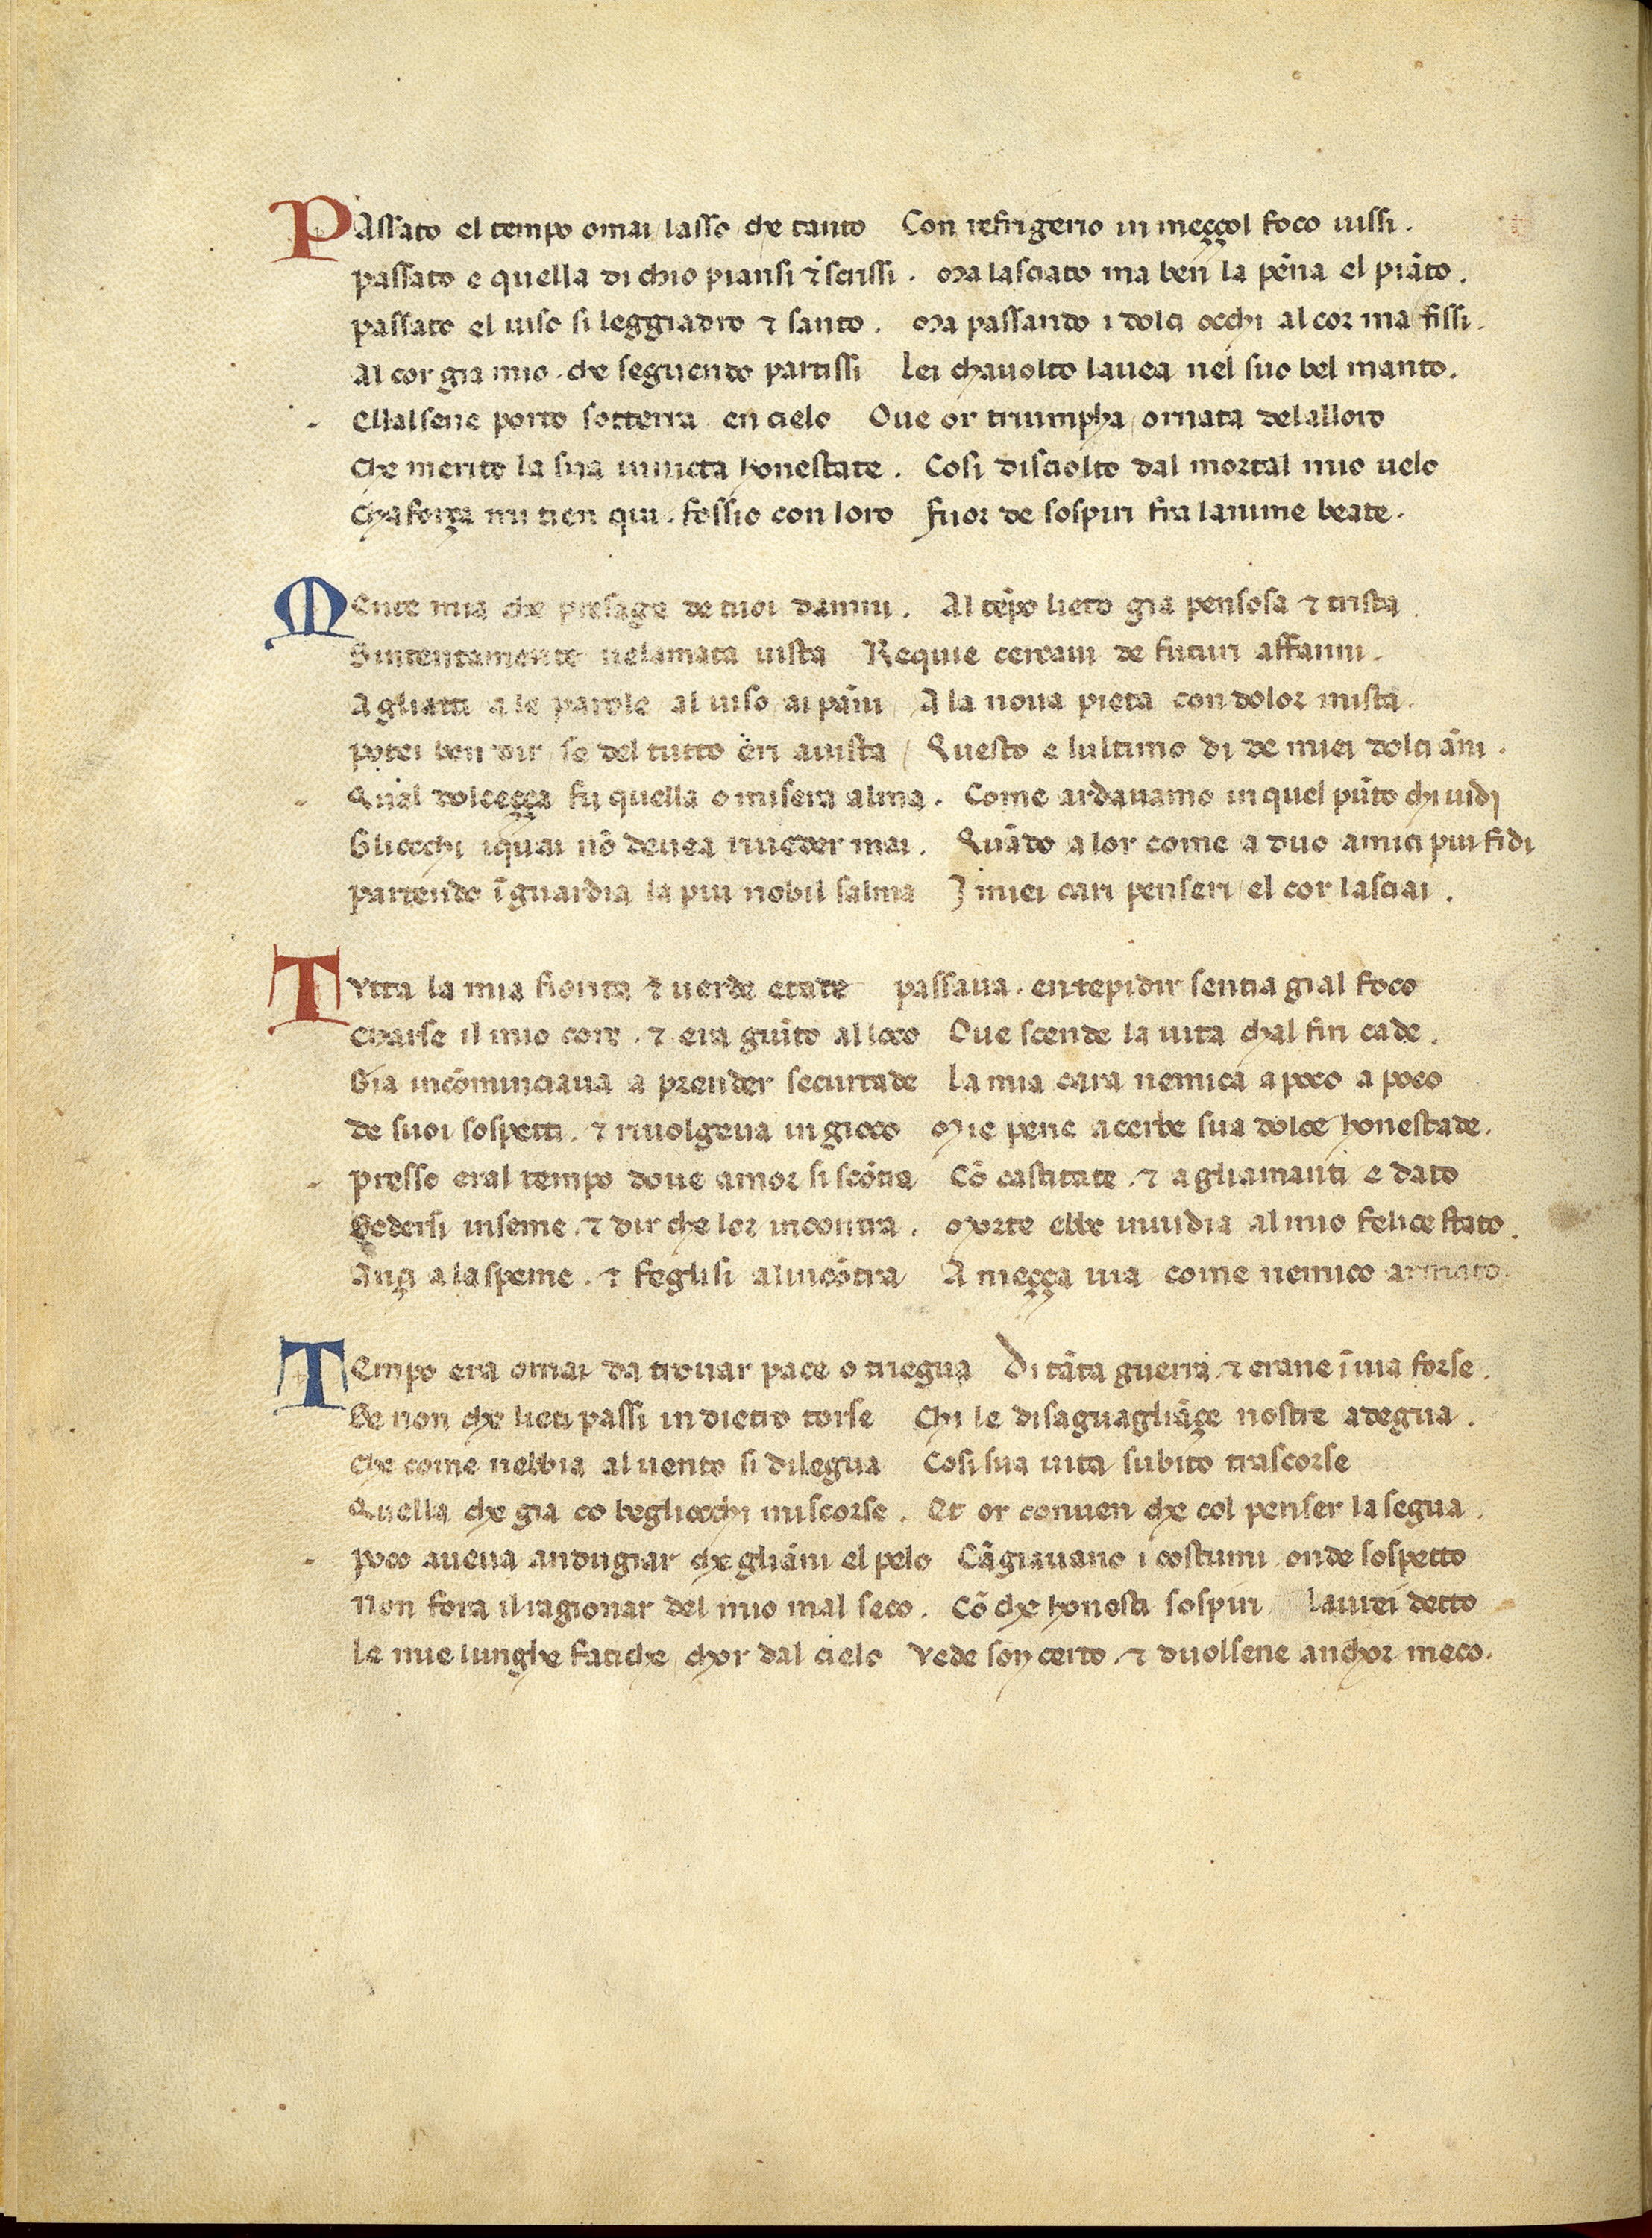 PAssato el tempo omai lasso che tanto Con refrigerio in meççol foco uissi.
passato e quella di chio piansi ⁊ scrissi. Ma lasciato ma ben la pēna el piāto.
passato el uiso si leggiadro ⁊ santo. Ma passando i dolci occhi al cor ma fissi.
Al cor gia mio. che seguendo partissi Lei chauolto lauea nel suo bel manto.
Ellalsene porto sotterra en cielo Oue or triumpha ornata delalloro
Che merito la sua inuicta honestate. Cosi disciolto dal mortal mio uelo
Cha força mi tien qui. fossio con loro fuor de sospiri fra lanime beate.
MEnte mia che presaga de tuoi damni. Al tēpo lieto gia pensosa ⁊ trista.
Sintentamente nelamata uista Requie cercaui de futuri affanni.
A gliatti a le parole al uiso ai pāni A la noua pieta con dolor mista.
potei ben dir se del tutto eri auista Questo e lultimo di de miei dolci āni.
Qual dolceçça fu quella o misera alma. Come ardauamo in quel pūto chi uidi
Gliocchi iquai nō deuea riueder mai. Quādo a lor come a duo amici piu fidi
partendo ī guardia la piu nobil salma I miei cari penseri el cor lasciai.
TVtta la mia fiorita ⁊ uerde etade passaua. entepidir sentia gial foco
Charse il mio core. ⁊ era giūto al loco Oue scende la uita chal fin cade.
Gia incōminciaua a prender securtade La mia cara nemica a poco a poco
de suoi sospetti. ⁊ riuolgeua in gioco Mie pene acerbe sua dolce honestade.
presso eral tempo doue amor si scōtra Cō castitate. ⁊ a gliamanti e dato
Sedersi inseme. ⁊ dir che lor incontra. Morte ebbe inuidia al mio felice stato.
Ançi a la speme. ⁊ feglisi alincōtra A meçça uia come nemico armato.
TEmpo era omai da trouar pace o triegua Di tāta guerra. ⁊ erane ī uia forse.
Se non che lieti passi in dietro torse Chi le disaguagliāçe nostre adegua.
Che come nebbia al uento si dilegua Cosi sua uita subito trascorse
Quella che gia co begliocchi mi scorse. Et or conuen che col penser la segua.
poco aueua andugiar che gliāni el pelo Cāgiauano i costumi. onde sospetto
Non fora il ragionar del mio mal seco. Cō che honesti sospiri laurei detto
Le mie lunghe fatiche chor dal cielo Vede son certo. ⁊ duolsene anchor meco.